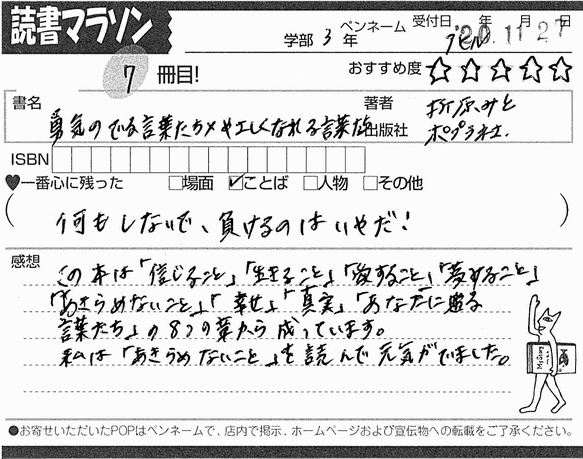 読書マラソン
学部 3 年 ペンネーム ア゚セル 受付日 '20年11月27日
7 冊目!
おすすめ度 ☆☆☆☆☆
書名 勇気のでる言葉たち××やさしくなれる言葉たち
著者 折原みと
出版社 ポプラ社.
ISBN
♥一番心に残った □場面 ☑ことば □人物 □その他
( 何もしないで、負けるのはいやだ! )
感想
この本は「信じること」「生きること」「愛すること」「夢すること」
「あきらめないこと」「幸せ」「真実」「あなたに贈る
言葉たち」の8つの葉から成っています。
私は「あきらめないこと」を読んで元気がでました。
●お寄せいただいたPOPはペンネームで、店内で掲示、ホームページおよび宣伝物への転載をご了承ください。